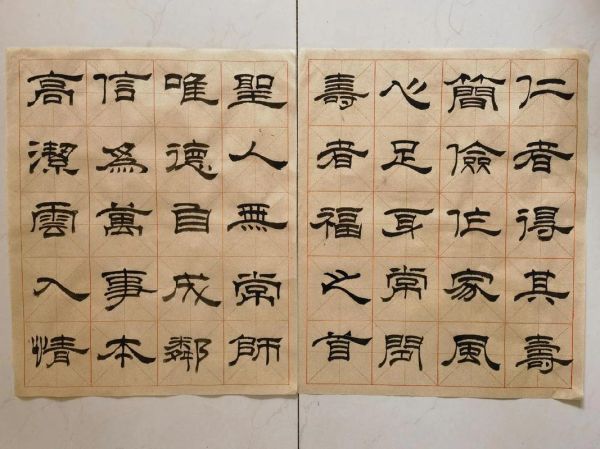 仁者得其壽
簡儉作家風
心足身常閒
壽者福之首
聖人無常師
唯德自成鄰
信爲萬事本
高潔雲入情